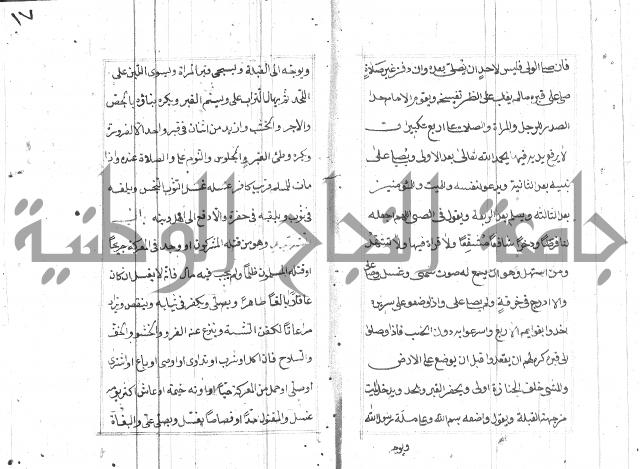 فان صلى الولي فليس لاحد ان يصلي بعده وان دفن بغير صلاة
صلى على قبره ما لم يغلب على الظن تفسخه ويقوم الامام حذا
الصدر للرجل والمراة والصلاة اربع تكبيرات
لا يرفع يديه فيها يحمد الله تعالى بعد الاولى ويصلى على
نبيه بعد الثانية ويدعو لنفسه وللميت وللمؤمنين
بعد الثالثة ويسلم بعد الرابعة ويقول في الصبي اللهم اجعله
لنا فرطا وذخرا شافعا مشفعا ولا قراءة فيها ولا تشهد
ومن استهل وهو ان يسمع له صوت سمي وغسل وصلى عليه
والا ادرج في خرقة ولم يصل عليه واذا وضعوه على سريره
اخذوا بقوايمه الاربع واسرعوا به دون الخبب فاذا وصلوا
الى قبره كره لهم ان يقعدوا قبل ان يوضع على الارض
والمشي خلف الجنازة اولى ويحفر القبر ويلحد ويدخل الميت
من جهة القبلة ويقول واضعه بسم الله وعلى ملة رسول الله
ويوجه
١٧
ويوجه الى القبلة ويسجى قبر المراة ويسوى اللبن على
اللحد ثم يهال التراب عليه ويسنم القبر ويكره بناؤه بالجص
والاجر والخشب وان يدفن اثنان في قبر واحد الا لضرورة
ويكره وطئ القبر والجلوس والنوم عليه والصلاة عنده واذا
مات للمسلم قريب كافر غسله غسل الثوب النجس ويلفه
في ثوب ويلقيه في حفرة والا دفع الى اهل دينه
وهو من قتله المشركون او وجد في المعركة جريحا
او قتله المسلمون ظلما ولم يجب فيه مال فانه لا يغسل ان كان
عاقلا بالغا طاهرا ويصلى عليه ويكفن في ثيابه وينقص ويزاد
مراعاة لكفن السنة وينزع عنه الفرو والحشو والخف
والسلاح فاذا اكل او شرب او تداوى او اوصى او باع او اشترى
او صلى او حمل من المعركة حيا او اوته خيمة او عاش اكثر يوم
غسل والمقتول حدا او قصاصا يغسل ويصلى عليه والبغاة
جامعة النجاح الوطنية